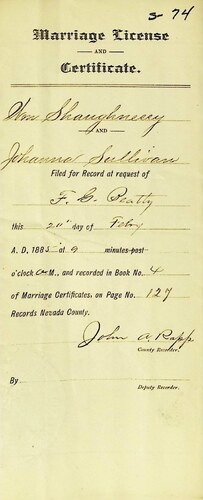 3-74
Marriage License
AND
Certificate.
Wm Shaughnessy
AND
Johanna Sullivan
Filed for Record at request of
F. C. Peatty
this 20" day of Feby
A. D., 1885 at 9 minutes past
o'clock A M., and recorded in Book No. 4
of Marriage Certificates, on Page No. 127
Records Nevada County.
John A. Rapp
County Recorder.
By
Deputy Recorder.